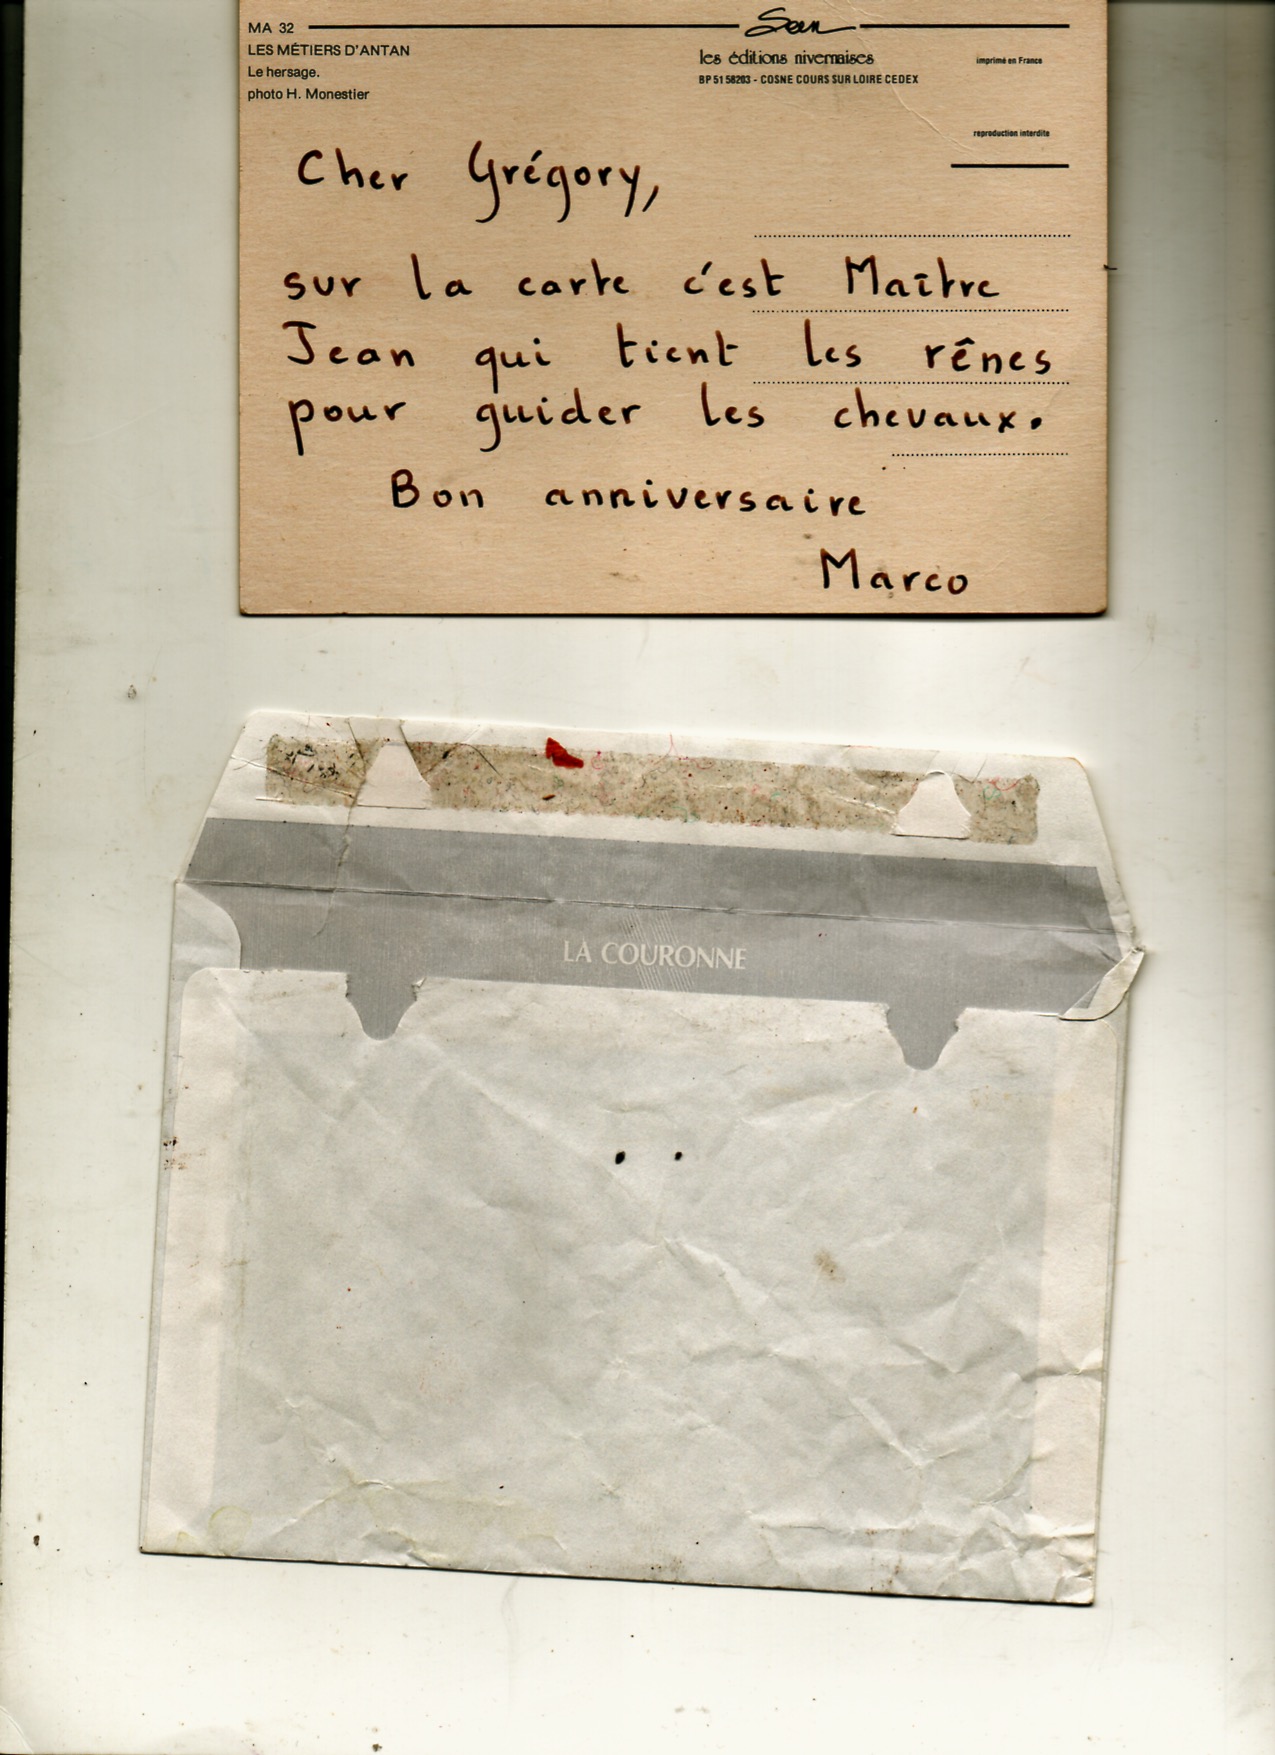 MA 32
LES MÉTIERS D'ANTAN
Le hersage.
photo H. Monestier
les éditions nivernaises
BP 51 58203 - COSNE COURS SUR LOIRE CEDEX
imprimé en France
reproduction interdite
Cher Grégory,
sur la carte c'est Maître
Jean qui tient les rênes
pour guider les chevaux.
Bon anniversaire
Marco
LA COURONNE